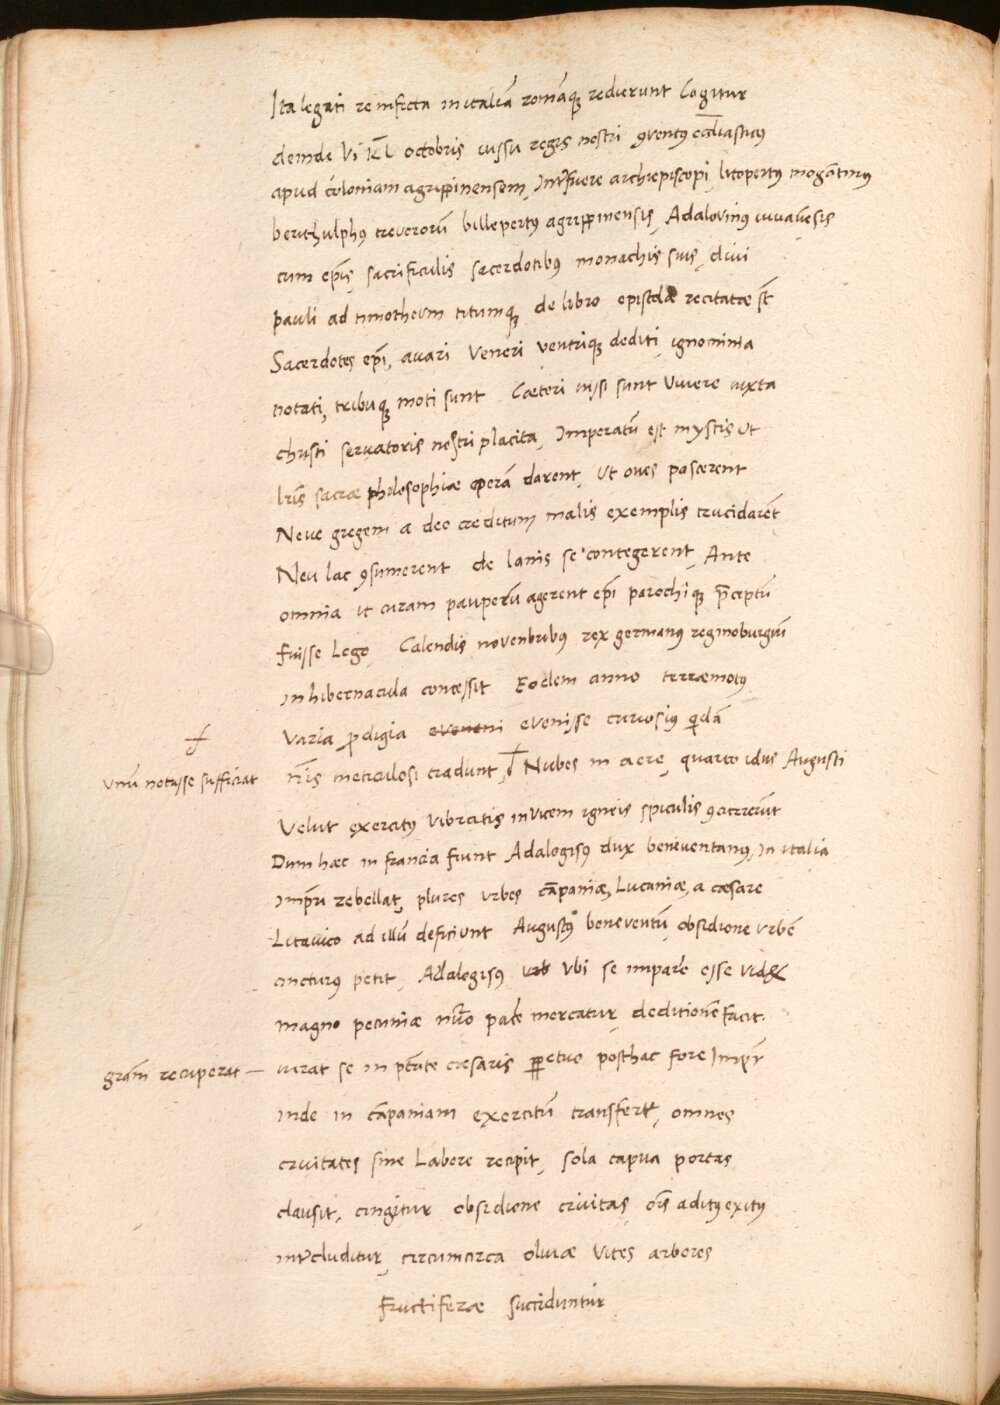 Ita legati re infecta in italiā romāq; redierunt Cogitur
deinde Vi kl octobris iussu regis nostri ꝯventus ecclīasticus
apud coloniam agrippinensem, Interfuere archiepiscopi, litopertus mogōtinus
berithulphus treverorū billepertus agrippinensis, Adalovinus iuvavēsis
cum epīs, sacrificulis sacerdotibus monachis suis, divi
pauli ad timotheum titumq; de libro epistolæ recitatæ st̄
Sacerdotes epī, avari Veneri ventriq; dediti ignominia
notati, tribuq; moti sunt Cæteri iussi sunt Vivere iuxta
christi servatoris nostri placita, Imperatū est mystis ut
lr̄is sacræ philosophiæ operā darent, Ut oves pascerent
Neve gregem a deo creditum malis exemplis trucidarēt
Neu lac ꝯsumerent de lanis se contegerent, Ante
omnia ut curam pauperū agerent epī parochiq; p̄ceptū
fuisse Lego, Calendis novenbribus rex germanus reginoburgiū
in hibernacula concessit Eodem anno terræmotus
Varia prodigia eveneni evenisse curiosius quidā
nr̄is meticulosi tradunt, † Nubes in aere, quarto idus Augusti
† Unū notasse sufficiat
Velut exercitus vibratis invicem igneis spiculis ꝯcurrerūt
Dum hæc in francia fiunt Adalogisus dux beneventanus, in italia
Imp̄ri rebellat, plures urbes cāpaniæ, Lucaniæ, a cæsare
Litavico ad illū deficiunt Augustus beneventū, obsidione urbē
cincturus petit, Adalogisus ubi Ubi se imparē esse videt
magno pecuniæ nūo pacē mercatur, deditionē facit.
gratiā recuperat — iurat se in ptāte cæsaris ꝑpetuo posthac fore Imper
inde in cāpaniam exercitū transfert, omnes
civitates sine Labore recipit, sola capua portas
clausit, cingitur obsidione civitas, oīs aditus exitus
intercluditur, circumcirca olivæ vites arbores
fructiferæ succiduntur